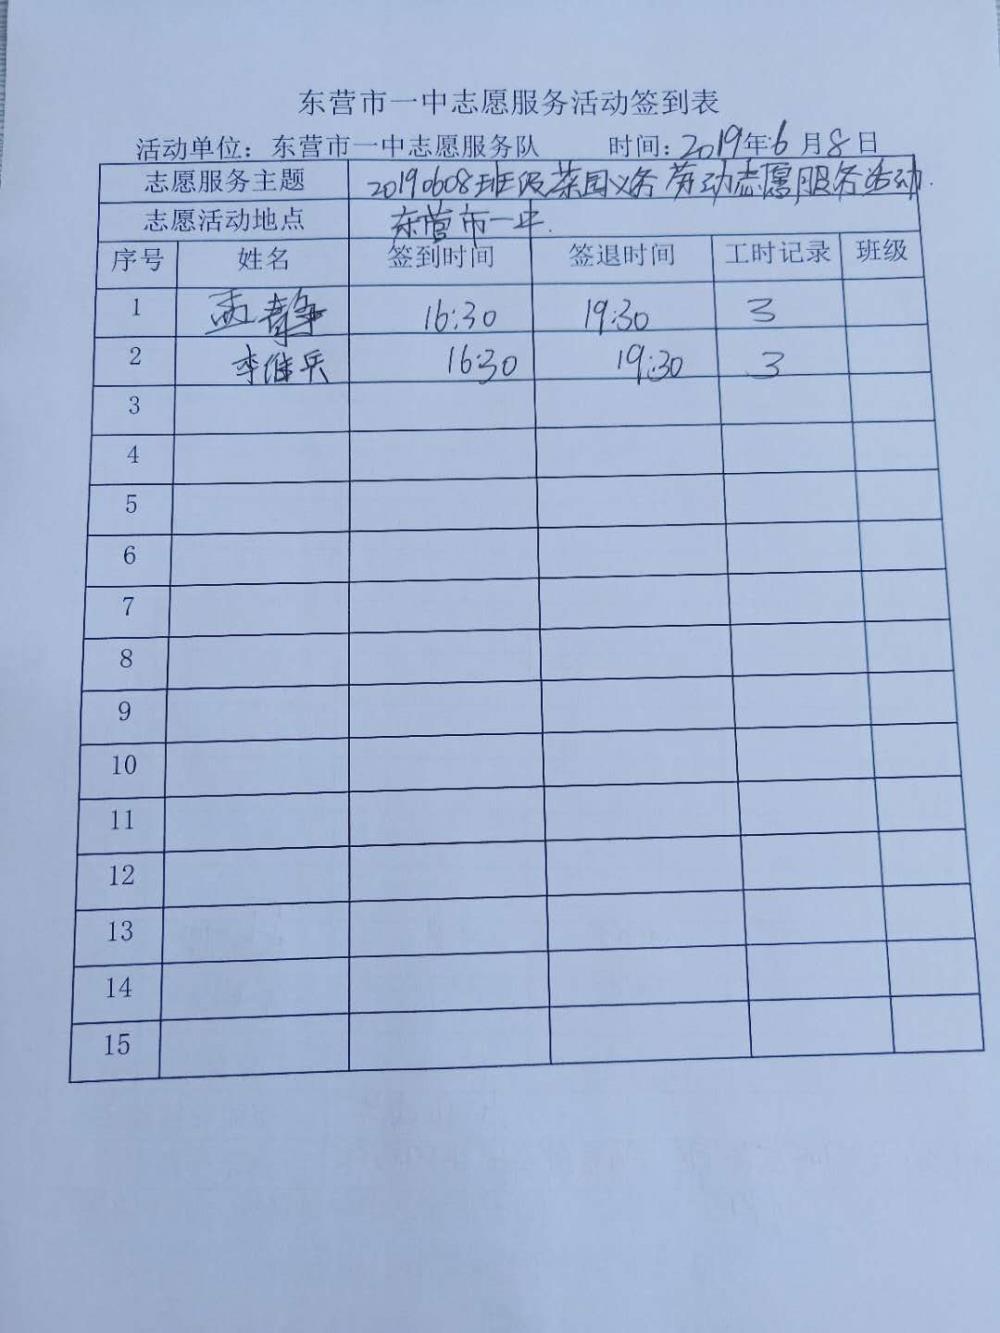 东营市一中志愿服务活动签到表
活动单位：东营市一中志愿服务队 时间：2019年6月8日
志愿服务主题 20190608班级菜园义务劳动志愿服务活动.
志愿活动地点 东营市一中.
序号 姓名 签到时间 签退时间 工时记录 班级
1 孟静 16:30 19:30 3
2 李继兵 16:30 19:30 3
3
4
5
6
7
8
9
10
11
12
13
14
15